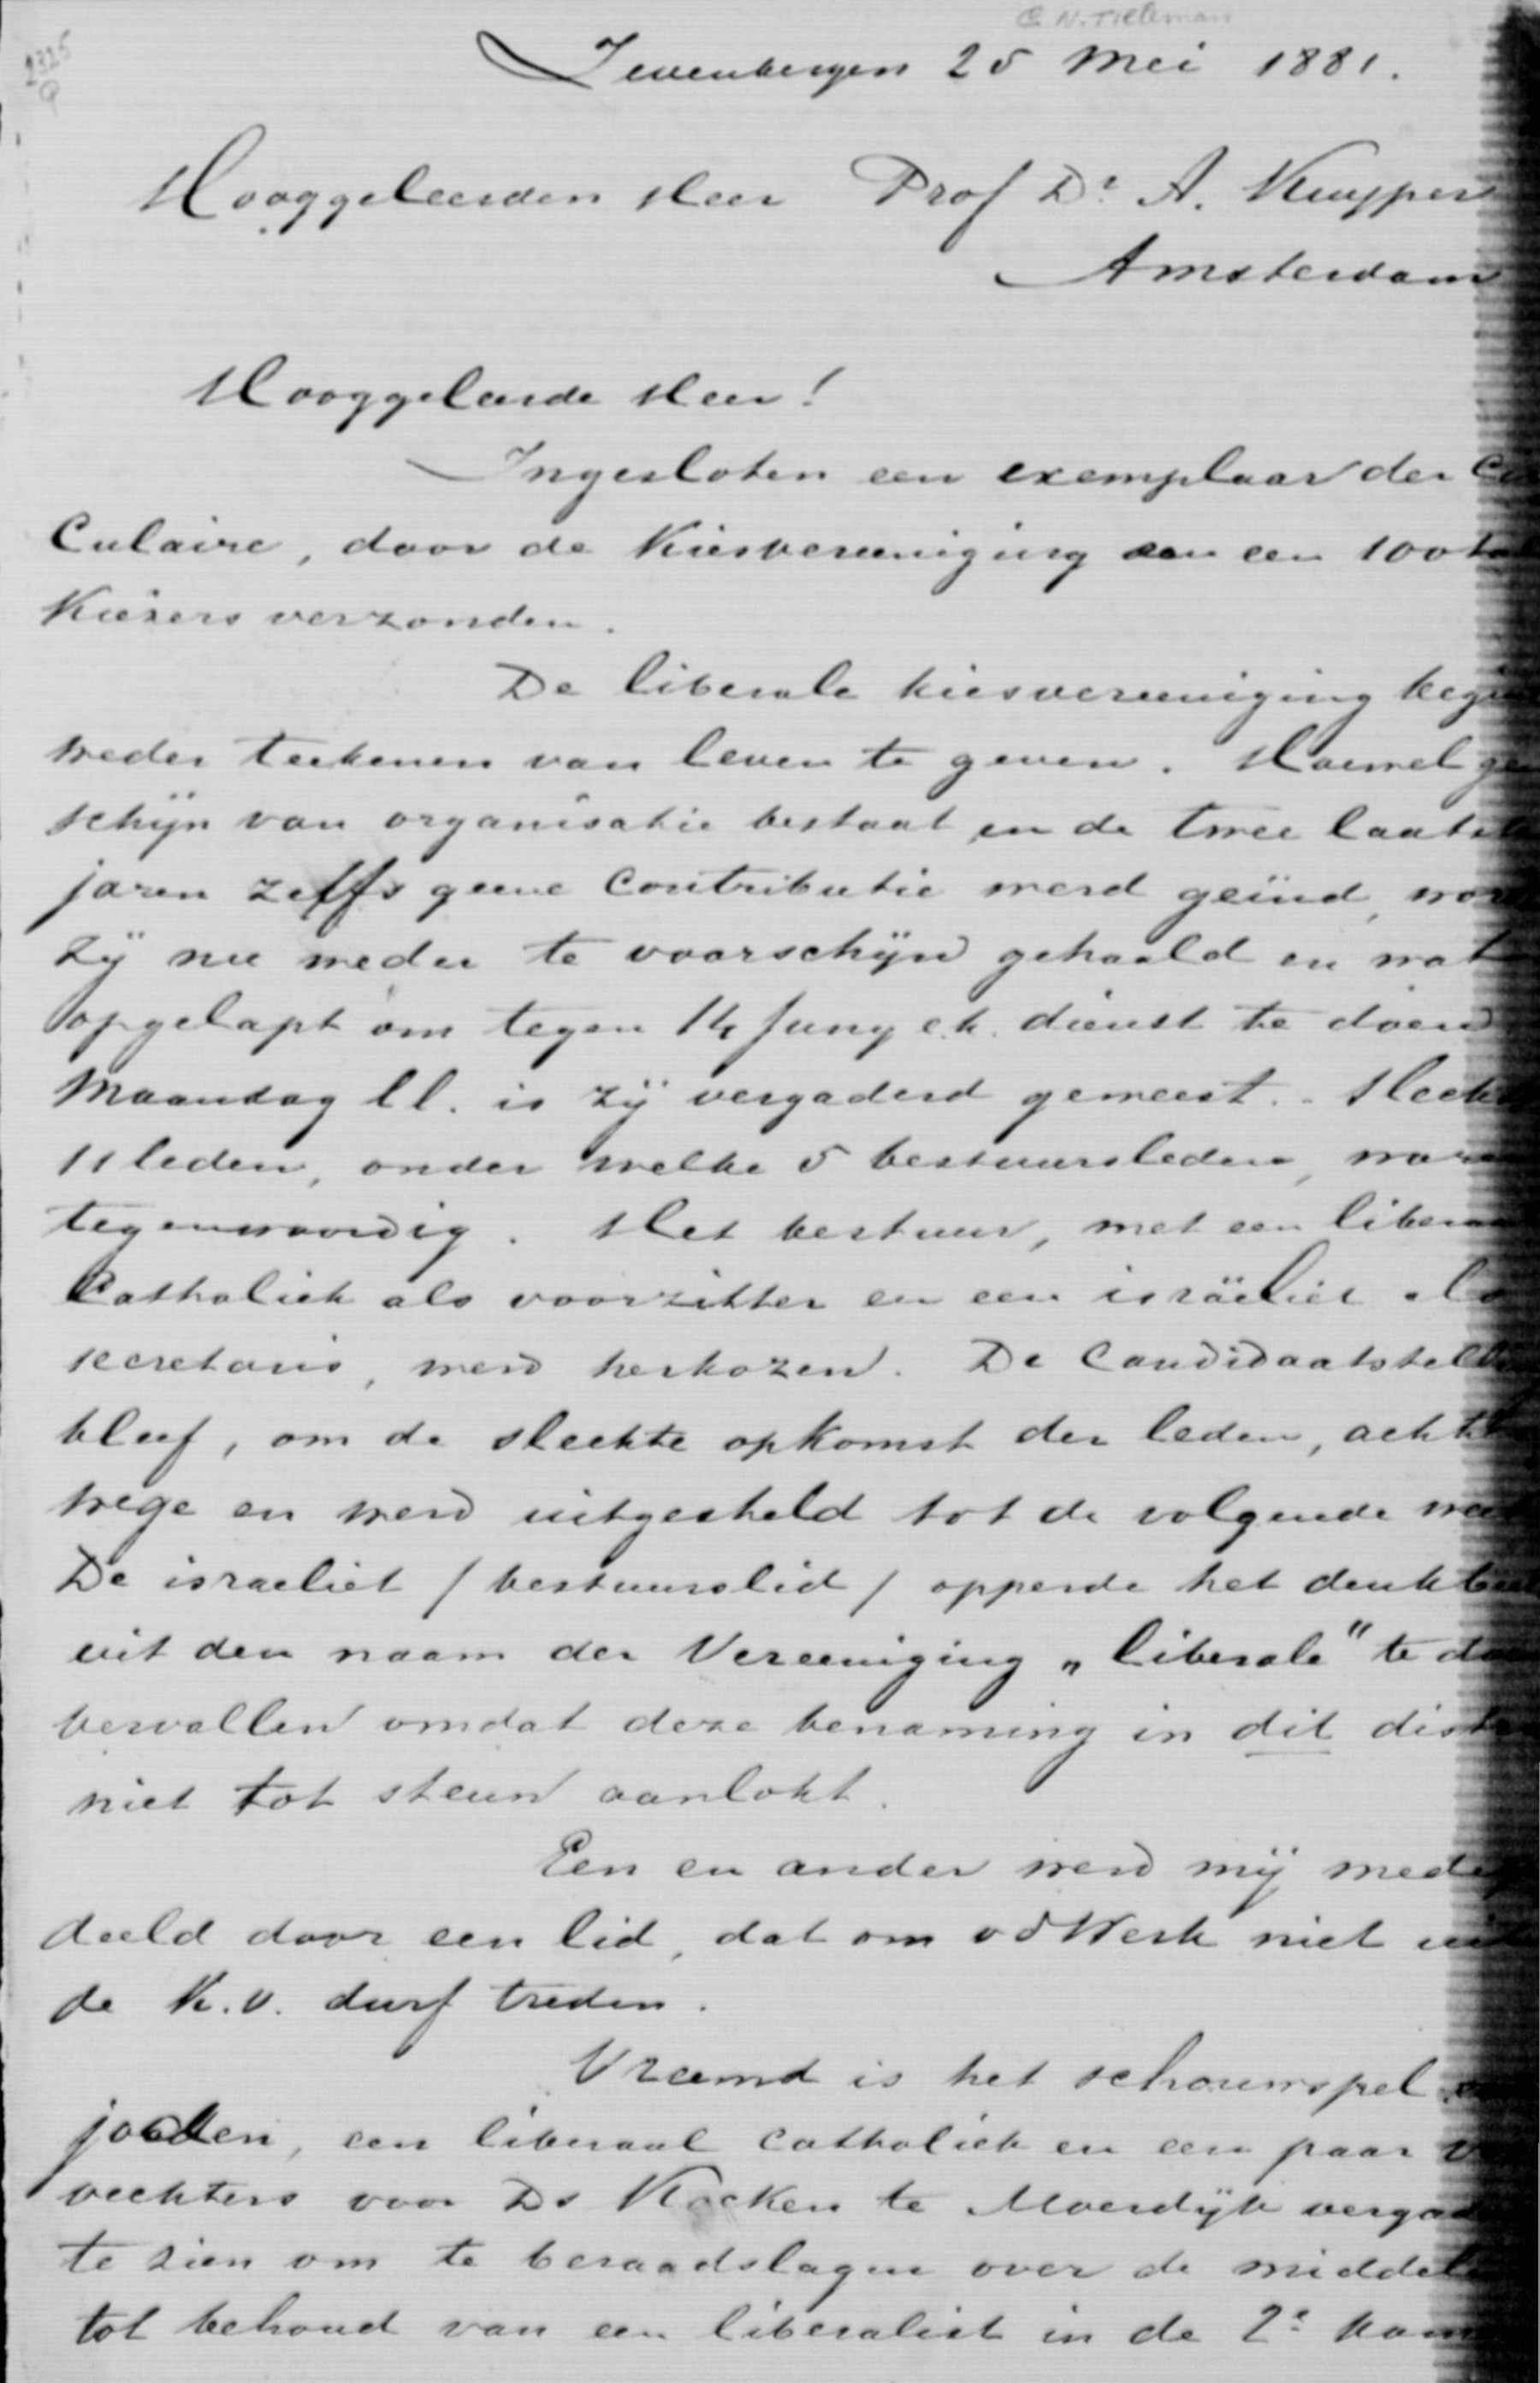 C N. Tieleman
2325
Zevenbergen 25 Mei 1881.
Hooggeleerden Heer Prof Dr. A. Kuyper
Amsterdam
Hooggeleerde Heer!
Ingesloten een exemplaar der Ci
culaire, door de Kiesvereeniging aan een 100ta
Kiezers verzonden.
De liberale kiesvereeniging begi
weder teekenen van leven te geven. Hoewel ge
schijn van organisatie bestaat en de twee laatste
jaren zelfs geene Contributie werd geïnd, wor
zij nu weder te voorschijn gehaald en wat
opgelapt om tegen 14 Juny e.k. dienst te doen
Maandag ll. is zij vergaderd geweest. Slech
11 leden, onder welke 5 bestuursleden, ware
tegenwoordig. Het bestuur, met een libera
Catholiek als voorzitter en een israëliet als
secretaris, werd herkozen. De Candidaatstelli
bleef, om de slechte opkomst der leden, achte
wege en werd uitgesteld tot de volgende we
De israeliet / bestuurslid / opperde het denkbee
uit den naam der Vereeniging „liberale" te do
vervallen omdat deze benaming in dit distr
niet tot steun aanlokt.
Een en ander werd mij mede
deeld door een lid, dat om vd Werk niet uit
de K.V. durf treden.
Vreemd is het schouwspel
joden, een liberaal catholiek en een paar
vechters voor Ds Kocken te Moerdijk vergad
te zien om te beraadslagen over de middele
tot behoud van een liberalist in de 2e Kam